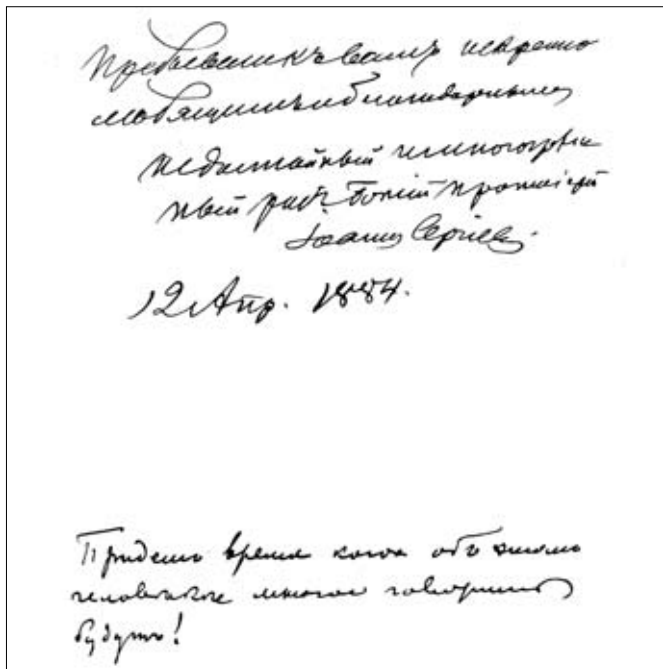 Пребываю къ вамъ искренно
любящимъ и благодарнымъ
недостойный и многогрѣш
ный рабъ Божій протоіерей
Іоаннъ Сергіевъ.
12 Апр. 1884.
Придетъ время когда объ этомъ
человѣкѣ многое говорить
будутъ!